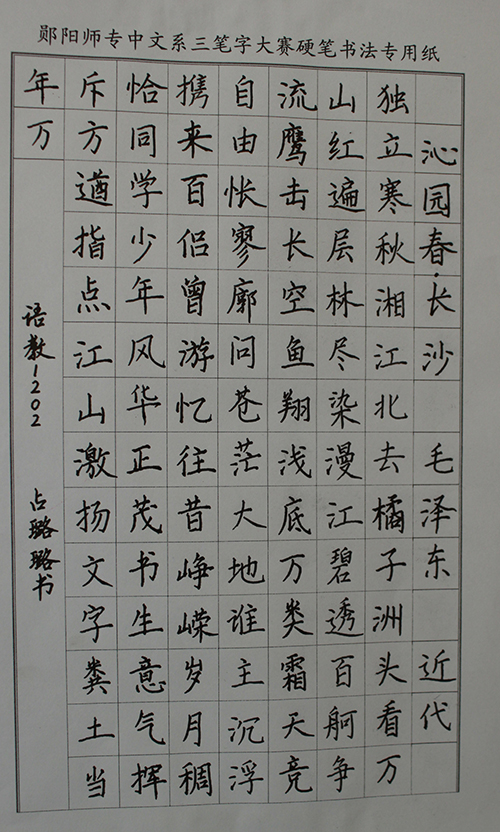 郧阳师专中文系三笔字大赛硬笔书法专用纸
沁园春·长沙 毛泽东 近代
独立寒秋湘江北去橘子洲头看万
山红遍层林尽染漫江碧透百舸争
流鹰击长空鱼翔浅底万类霜天竞
自由怅寥廓问苍茫大地谁主沉浮
携来百侣曾游忆往昔峥嵘岁月稠
恰同学少年风华正茂书生意气挥
斥方遒指点江山激扬文字粪土当
年万
语教1202 占璐璐书